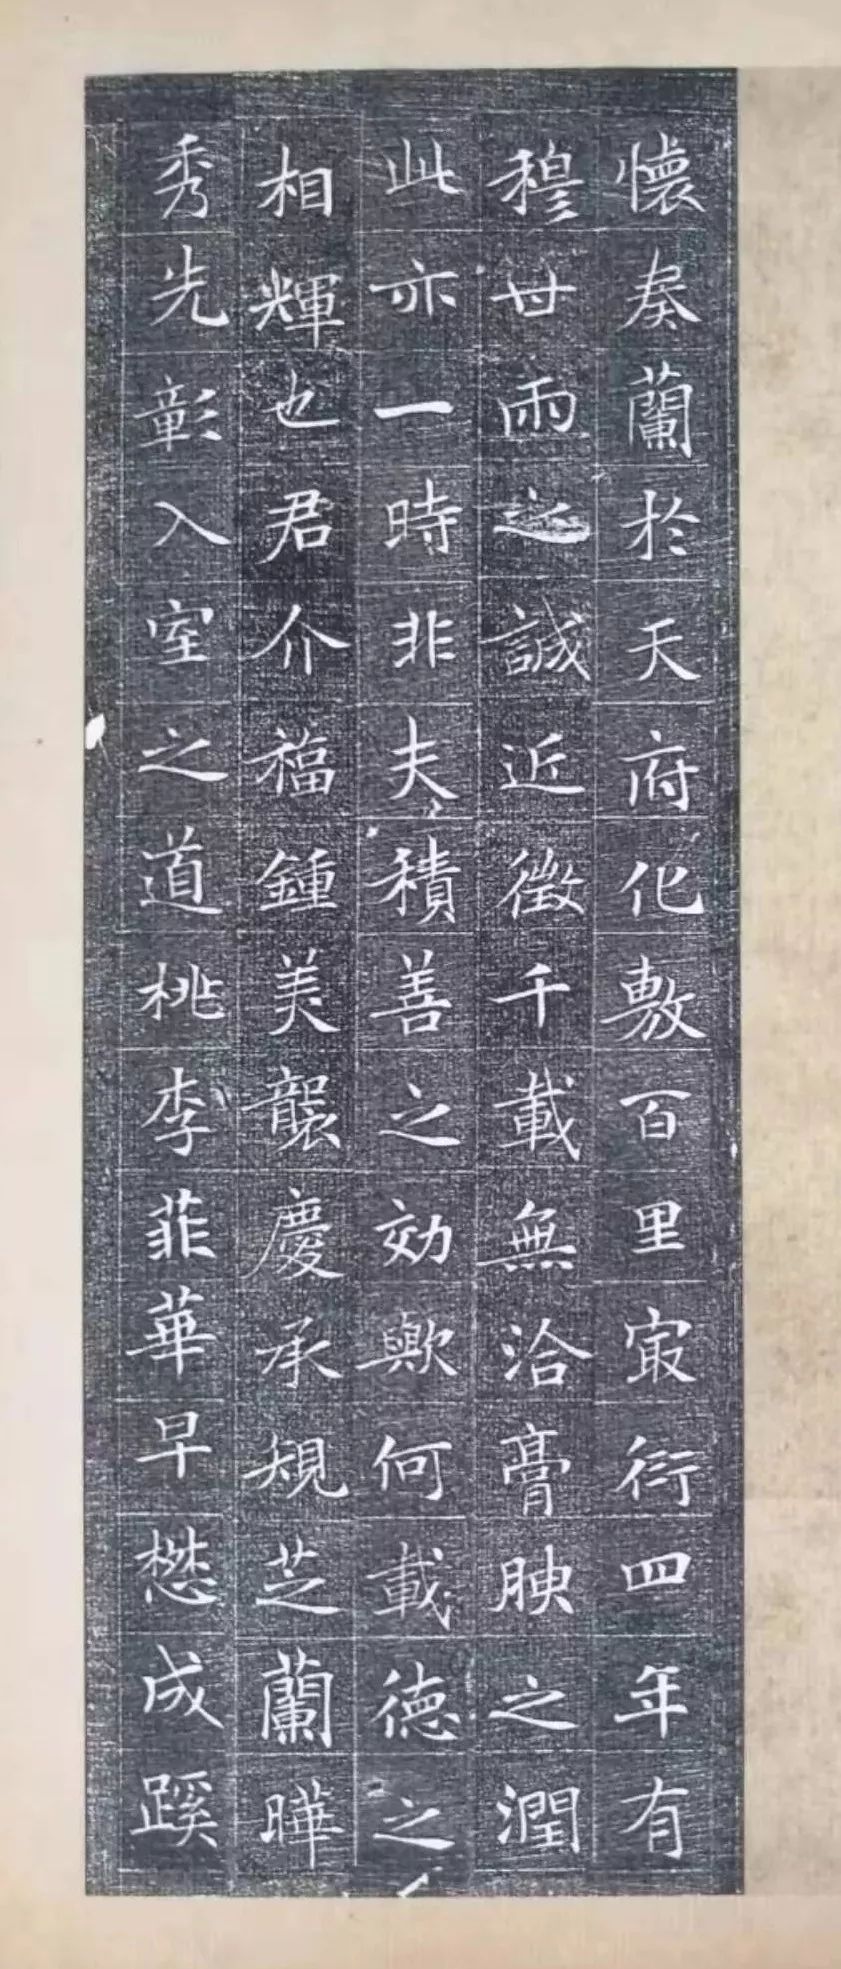 懷奏蘭於天府化敷百里冣衍四年有
穆世雨之誠近徵千載無洽膏腴之潤
此亦一時非夫積善之効歟何載德之
相輝也君介福鍾美襲慶承規芝蘭曄
秀先彰入室之道桃李菲華早懋成蹊